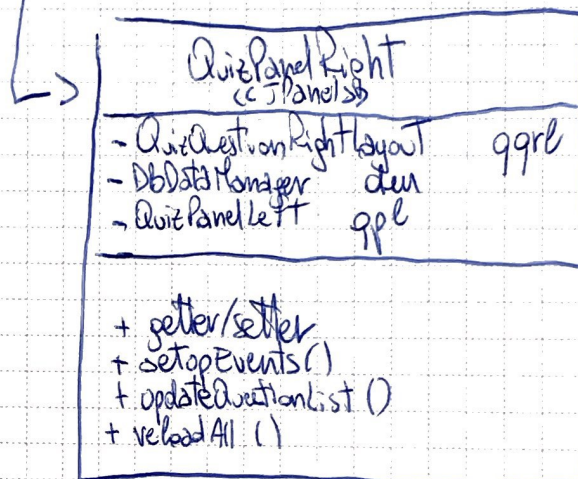 QuizPanelRight
<<JPanel>>
- QuizQuestionRightLayout qqrl
- DbDataManager dm
- QuizPanelLeft qpl
+ getter/setter
+ setupEvents()
+ updateQuestionList()
+ reloadAll()